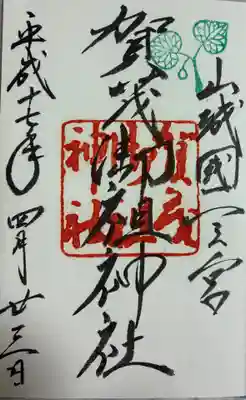 山城國一之宮
賀茂御祖神社
賀茂御祖神社
平成十七年
四月廿三日